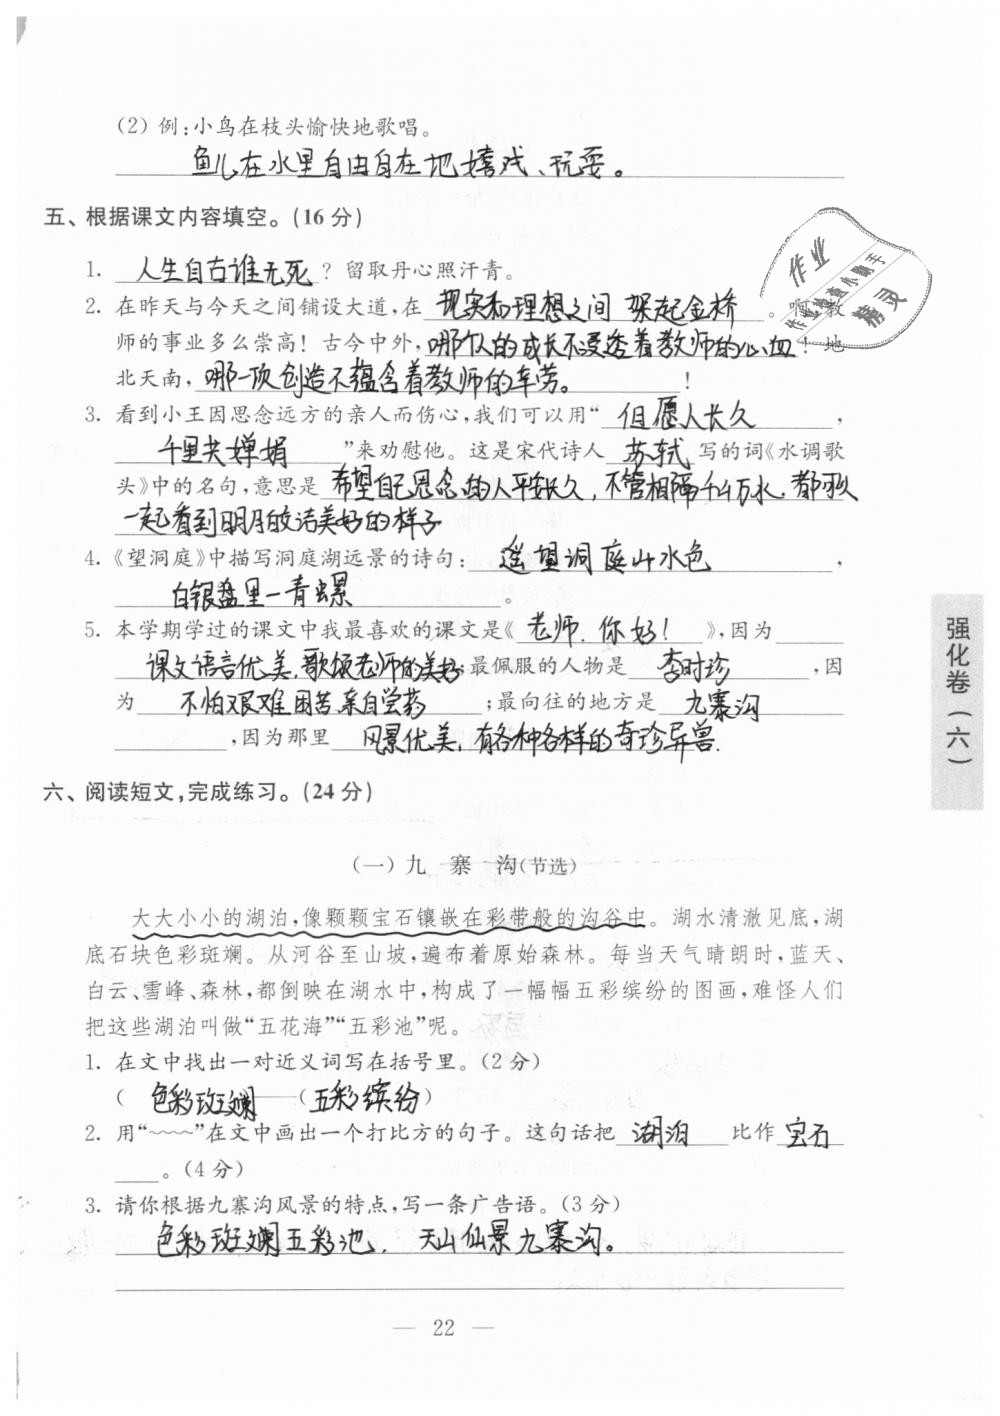 (2) 例:小鸟在枝头愉快地歌唱。
鱼儿在水里自由自在地嬉戏、玩耍。
五、根据课文内容填空。(16分)
1. 人生自古谁无死? 留取丹心照汗青。
2. 在昨天与今天之间铺设大道,在 现实和理想之间 架起金桥。啊,教
师的事业多么崇高! 古今中外,哪个人的成长不浸透着教师的心血! 地
北天南,哪一项创造不蕴含着教师的辛劳。!
3. 看到小王因思念远方的亲人而伤心,我们可以用“但愿人长久,
千里共婵娟”来劝慰他。这是宋代诗人 苏轼 写的词《水调歌
头》中的名句,意思是 希望自己思念的人平安长久,不管相隔千山万水,都可以
一起看到明月皎洁美好的样子
4.《望洞庭》中描写洞庭湖远景的诗句: 遥望洞庭山水色,
白银盘里一青螺。
5. 本学期学过的课文中我最喜欢的课文是《老师,你好!》,因为
课文语言优美,歌颂老师的美好;最佩服的人物是 李时珍,因
为 不怕艰难困苦亲自尝药;最向往的地方是 九寨沟
,因为那里 风景优美,有各种各样的奇珍异兽.
六、阅读短文,完成练习。(24分)
(一)九 寨 沟(节选)
大大小小的湖泊,像颗颗宝石镶嵌在彩带般的沟谷中。湖水清澈见底,湖
底石块色彩斑斓。从河谷至山坡,遍布着原始森林。每当天气晴朗时,蓝天、
白云、雪峰、森林,都倒映在湖水中,构成了一幅幅五彩缤纷的图画,难怪人们
把这些湖泊叫做“五花海”“五彩池”呢。
1. 在文中找出一对近义词写在括号里。(2分)
( 色彩斑斓——(五彩缤纷)
2. 用“~~~~”在文中画出一个打比方的句子。这句话把 湖泊 比作 宝石
。(4分)
3. 请你根据九寨沟风景的特点,写一条广告语。(3分)
色彩斑斓五彩池,天山仙景九寨沟。
— 22 —
强化卷(六)
作业
作业检查小助手
精灵